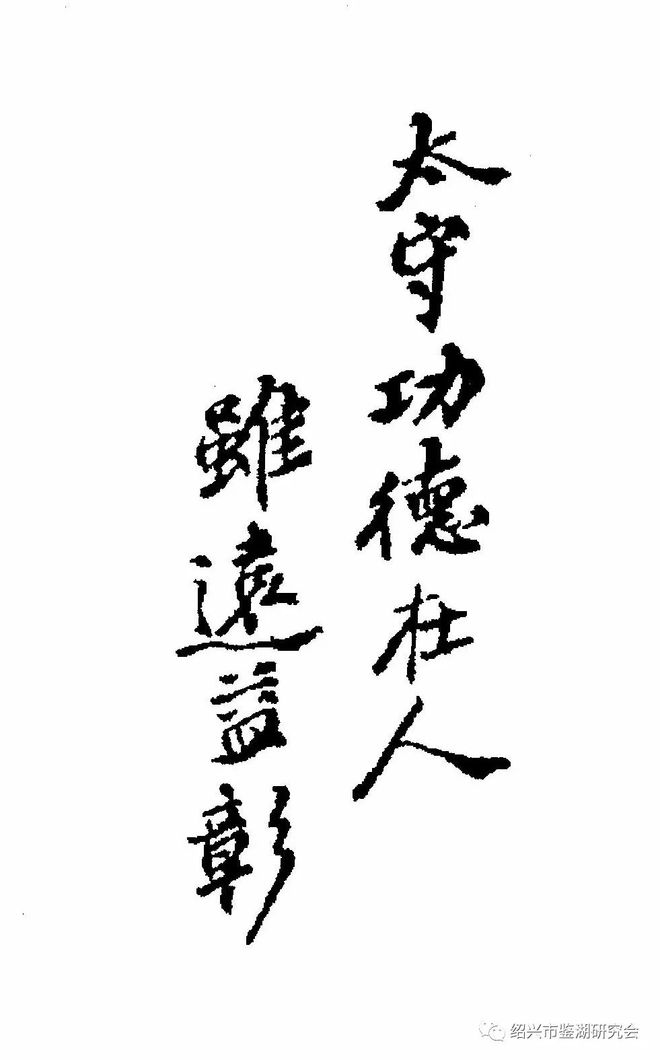 太守功德在人
雖遠益彰
绍兴市鉴湖研究会